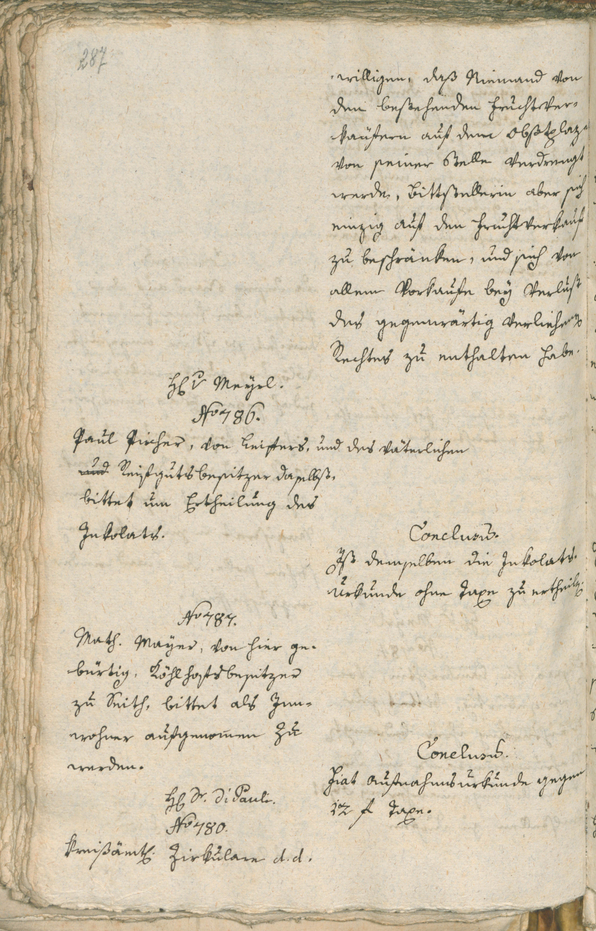 287
willigen, daß Niemand von
den bestehenden Fruchtver-
käufern auf dem Obstplaz
von seiner Stelle verdrengt
werde, Bittstellerin aber sich
einzig auf den Fruchtverkauf
zu beschränken, und sich von
allem Vorkaufe bey Verlust
des gegenwärtig verliehenen
Rechtes zu enthalten habe.
H. v Meyrl.
No 786.
Paul Pircher, von Leifers, und des väterlichen
und Reifgutsbesitzer daselbst,
bittet um Ertheilung des
Inkolats.
Conclusum.
Ist demselben die Inkolats-
Urkunde ohne Taxe zu ertheilen.
No 787.
Math. Mayer, von hier ge-
bürtig, Köhlhofsbesitzer
zu Seith, bittet als Inn-
wohner aufgenommen zu
werden.
Conclusum.
Fiat Aufnahmsurkunde gegen
12 f Taxe.
H. Dr. Di Pauli.
No 780.
Kreisämtl. Zirkulare d.d.